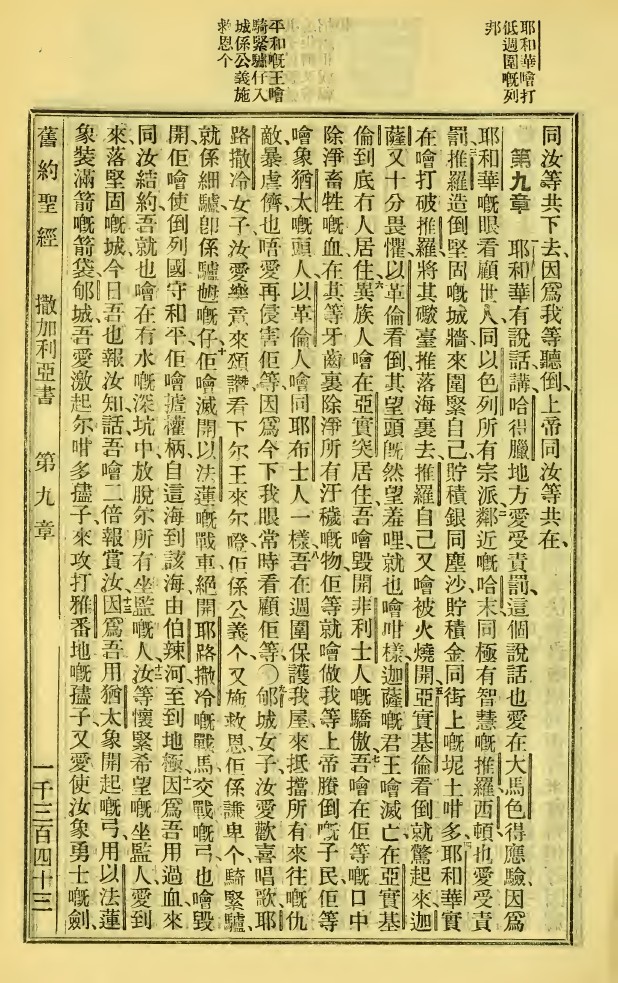 耶和華噲打
低週圍嘅列
邦
平和嘅王噲
騎緊驢仔入
城係公義施
救恩个
同汝等共下去、因爲我等聽倒、上帝同汝等共在、
第九章 耶和華有說話、講哈得臘地方愛受責罰、這個說話也愛在大馬色得應驗、因爲
耶和華嘅眼看顧世人、同以色列所有宗派、二鄰近嘅哈末、同極有智慧嘅推羅西頓、也愛受責
罰、三推羅造倒堅固嘅城牆來圍緊自己、貯積銀同塵沙、貯積金同街上嘅坭土咁多、四耶和華實
在噲打破推羅、將其礮臺推落海裏去、推羅自己又噲被火燒開、五亞實基倫看倒就驚起來、迦
薩又十分畏懼、以革倫看倒其望頭旣然望羞哩、就也噲咁樣、迦薩嘅君王噲滅亡、在亞實基
倫到底冇人居住、六異族人噲在亞實突居住、吾噲毀開非利士人嘅驕傲、七吾噲在佢等嘅口中
除淨畜牲嘅血、在其等牙齒裏除淨所有汙穢嘅物、佢等就噲做我等上帝賸倒嘅子民、佢等
噲象猶太嘅頭人、以革倫人噲同耶布士人一樣、八吾在週圍保護我屋、來抵擋所有來往嘅仇
敵、暴虐儕也唔愛再侵害佢等、因爲今下我眼常時看顧佢等、〇九郇城女子汝愛歡喜唱歌、耶
路撒冷女子汝愛樂意來頌讚、看下尔王來尔嘅、佢係公義个又施救恩、佢係謙卑个騎緊驢、
就係細驢卽係驢𡜵嘅仔、十佢噲滅開以法蓮嘅戰車、絕開耶路撒冷嘅戰馬、交戰嘅弓也噲毀
開、佢噲使倒列國守和平、佢噲摣權柄、自這海到該海、由伯辣河至到地極、十一因爲吾用過血來
同汝結約、吾就也噲在冇水嘅深坑中放脫尔所有坐監嘅人、十二汝等懷緊希望嘅坐監人、愛到
來落堅固嘅城、今日吾也報汝知話、吾噲二倍報賞汝、十三因爲吾用猶太象開起嘅弓、用以法蓮
象裝滿箭嘅箭袋、郇城吾愛激起尔咁多儘子、來攻打雅番地嘅儘子、又愛使汝象勇士嘅劍、
舊約聖經 撒加利亞書 第九章 一千三百四十三